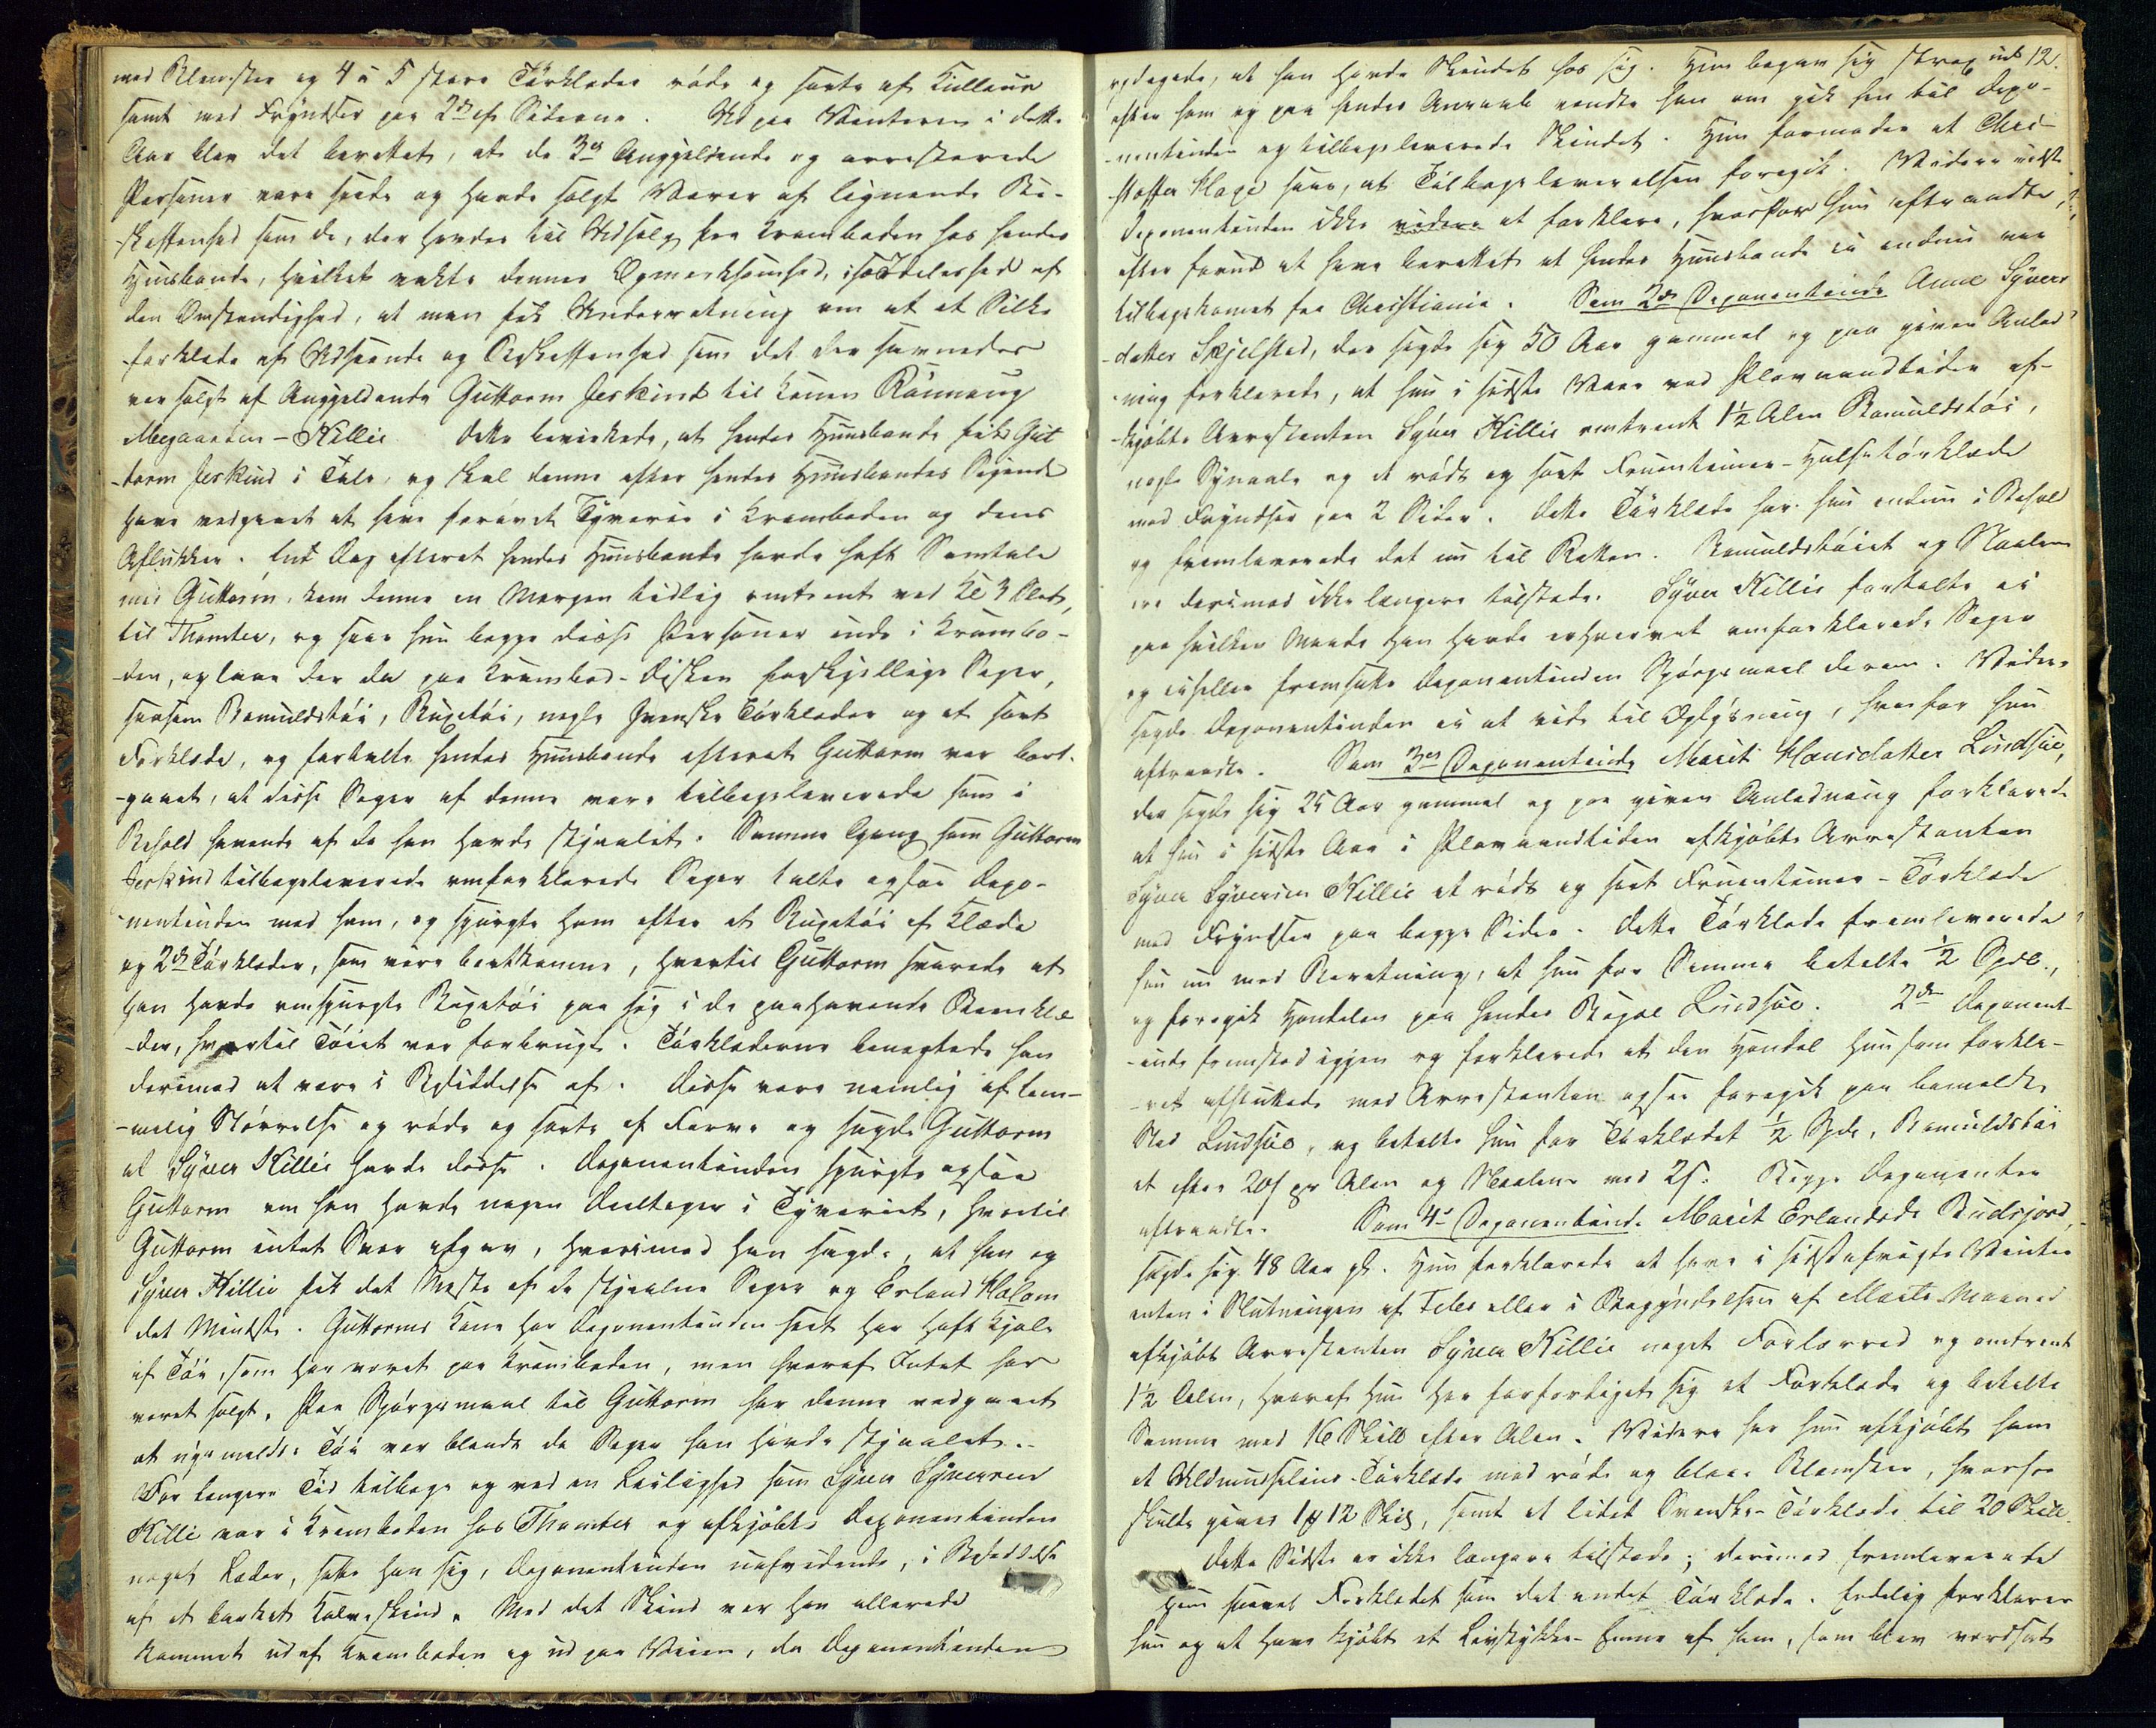 med Blomster og 4 a 5 store Tørklæder røde og sorte af Kulleur
samt med Fryndser paa 2de af Siderne. Ud paa Vinteren i dette
Aar blev det berettet, at de 3de Angjeldende og arresterede
Personer vare seede og havde solgt Varer af lignende Be-
-skaffenhed som de, der havdes til Udsalg fra Kramboden hos hendes
Huusbonde, hvilket vakte dennes Opmærksomhed, isærdeleshed af
den Omstændighed, at man fik Underretning om at et Silke
forklæde af Udseende og Beskaffenhed som det der savnedes
var solgt af Angjeldende Guttorm Jerkind til Konen Rønnaug
Megaarden-Killie Dette bevirkede, at hendes Huusbonde fik Gut
-torm Jerkind i Tale, og skal denne efter hendes Huusbondes Sigende
have vedgaaet at have forøvet Tyverie i Kramboden og dens
Aflukker. End Dag efterat hendes Huusbonde havde haft Samtale
med Guttorm, kom denne en Morgen tidlig omtrent ved Kl 3 Slet,
til Thomter, og saae hun begge disse Personer inde i Krambo-
-den, og laae der da paa Krambod-Disken forskjellige Sager,
saasom Bomuldstøi, Buxetøi, nogle svenske Tørklæder og et sort
Forklæde, og fortalte hendes Huusbonde efterat Guttorm var bort-
-gaaet, at disse Sager af denne vare tilbageleverede som i
Behold havende af de han havde stjaalet. Samme Gang som Guttorm
Jerkind tilbageleverede omforklarede Sager talte ogsaa Depo-
nentinden med ham, og spurgte ham efter et Buxetøi af Klæde
og 2de Tørklæder, som vare bortkomne, hvortil Guttorm svarede at
han havde omspurgte Buxetøi paa sig i de paahavende Beenklæ
-der, hvortil Tøiet var forbrugt. Tørklæderne benægtede han
derimod at være i Besiddelse af. Disse vare nemlig af tem-
-melig Størrelse og røde og sorte af Farve og sagde Guttorm
at Syver Killie havde disse. Deponentinden spurgte ogsaa
Guttorm om han havde nogen Deeltager i Tyveriet, hvortil
Guttorm intet Svar afgav, hvorimod han sagde, at han og
Syver Killie fik det Meste af de stjaalne Sager og Erland Holom
det Mindste. Guttorms Kone har Deponentinden seet har haft Kjole
af Tøi, som har været paa Kramboden, men hvoraf Intet har
været solgt. Paa Spørgsmaal til Guttorm har denne vedgaaet
at ogsaa meldte Tøi var blandt de Sager han havde stjaalet.
For længere Tid tilbage og ved en Leilighed som Syver Syversen
Killi var i Kramboden hos Thomter og afkjøbte Deponentinden
noget Læder, satte han sig, Deponentinden uafvidende, i Besiddelse
af et barket Kalveskind. Med det Skind var han allerede
kommet ud af Kramboden og ud paa Veien, da Deponentinden
12.
opdagede, at han havde Skindet hos sig. Hun begav sig strax ud
efter ham og paa hendes Anraab vendte han om gik hen til Depo-
-nentinden og tilbageleverede Skindet. Hun formoder at Chri-
-stoffer Hage saae, at Tilbageleverelsen foregik. Videre vidste
Deponentinden ikke videre at forklare, hvorfor hun aftraadte,
efter forud at have berettet at hendes Huusbonde ei endnu var
tilbagekommet fra Christiania. Som 2den Deponentinde Anne Syvers
-datter Skjelsted, der sagde sig 50 Aar gammel og paa given Anled
-ning forklarede, at hun i sidste Vaar ved Plovaandtiden af-
-kjøbte Arrestanten Syver Killie omtrent 1½ Alen Bomuldstøi,
nogle Synaale og et rødt og sort Fruentimer-Halstørklæde
med Fryndser paa 2 Sider. Dette Tørklæde har hun endnu i Behold
og fremleverede det nu til Retten. Bomuldstøiet og Naalene
ere derimod ikke længere tilstede. Syver Killie fortalte ei
paa hvilken Maade han havde erhvervet omforklarede Sager
og eiheller fremsatte Deponentinden Spørgsmaal derom. Videre
sagde Deponentinden ei at vide til Oplysning, hvorfor hun
aftraadte. Som 3die Deponentinde Marit Hansdatter Lindsøe,
der sagde sig 25 Aar gammel og paa given Anledning forklarede
at hun i sidste Aar i Plovaandtiden afkjøbte Arrestanten
Syver Syversen Killie et rødt og sort Fruentimer-Tørklæde
med Fryndser paa begge Sider. Dette Tørklæde fremleverede
hun nu med Beretning, at hun for Samme betalte ½ Spdl.,
og foregik Handelen paa hendes Bopæl Lindsøe. 2den Deponent-
-inde fremstod igjen og forklarede at den Handel hun har forkla-
-ret afsluttede med Arrestanten ogsaa foregik paa bemeldte
Sted Lindsøe, og betalte hun for Tørklædet ½ Spd, Bomuldstøi
et efter 20 s pr Alen og Naalene med 2 s. Begge Deponenter
aftraadte. Som 4de Deponentinde Marit Erlandsdr Budsjord,
sagde sig 48 Aar gl. Hun forklarede at have i sidstafvigte Vinter
enten i Slutningen af Febr eller i Begyndelsen af Marts Maaned
afkjøbt Arrestanten Syver Killie noget Forlærred og omtrent
1½ Alen, hvoraf hun har forfærdiget sig et Forklæde og betalte
Samme med 16 Skill efter Alen. Videre har hun afkjøbt ham
et Uldmusselins-Tørklæde med røde og blaae Blomster hvorfor
skulde gives 1 ₰ 12 Skil, samt et lidet Svenske-Tørklæde til 20 Skill.
Dette Sidste er ikke længere tilstede; derimod fremleverede
hun saavel Forklædet som det andet Tørklæde. Endelig forklarer
hun og at have kjøbt et Livstykke-Emne af ham, som blev værdsat